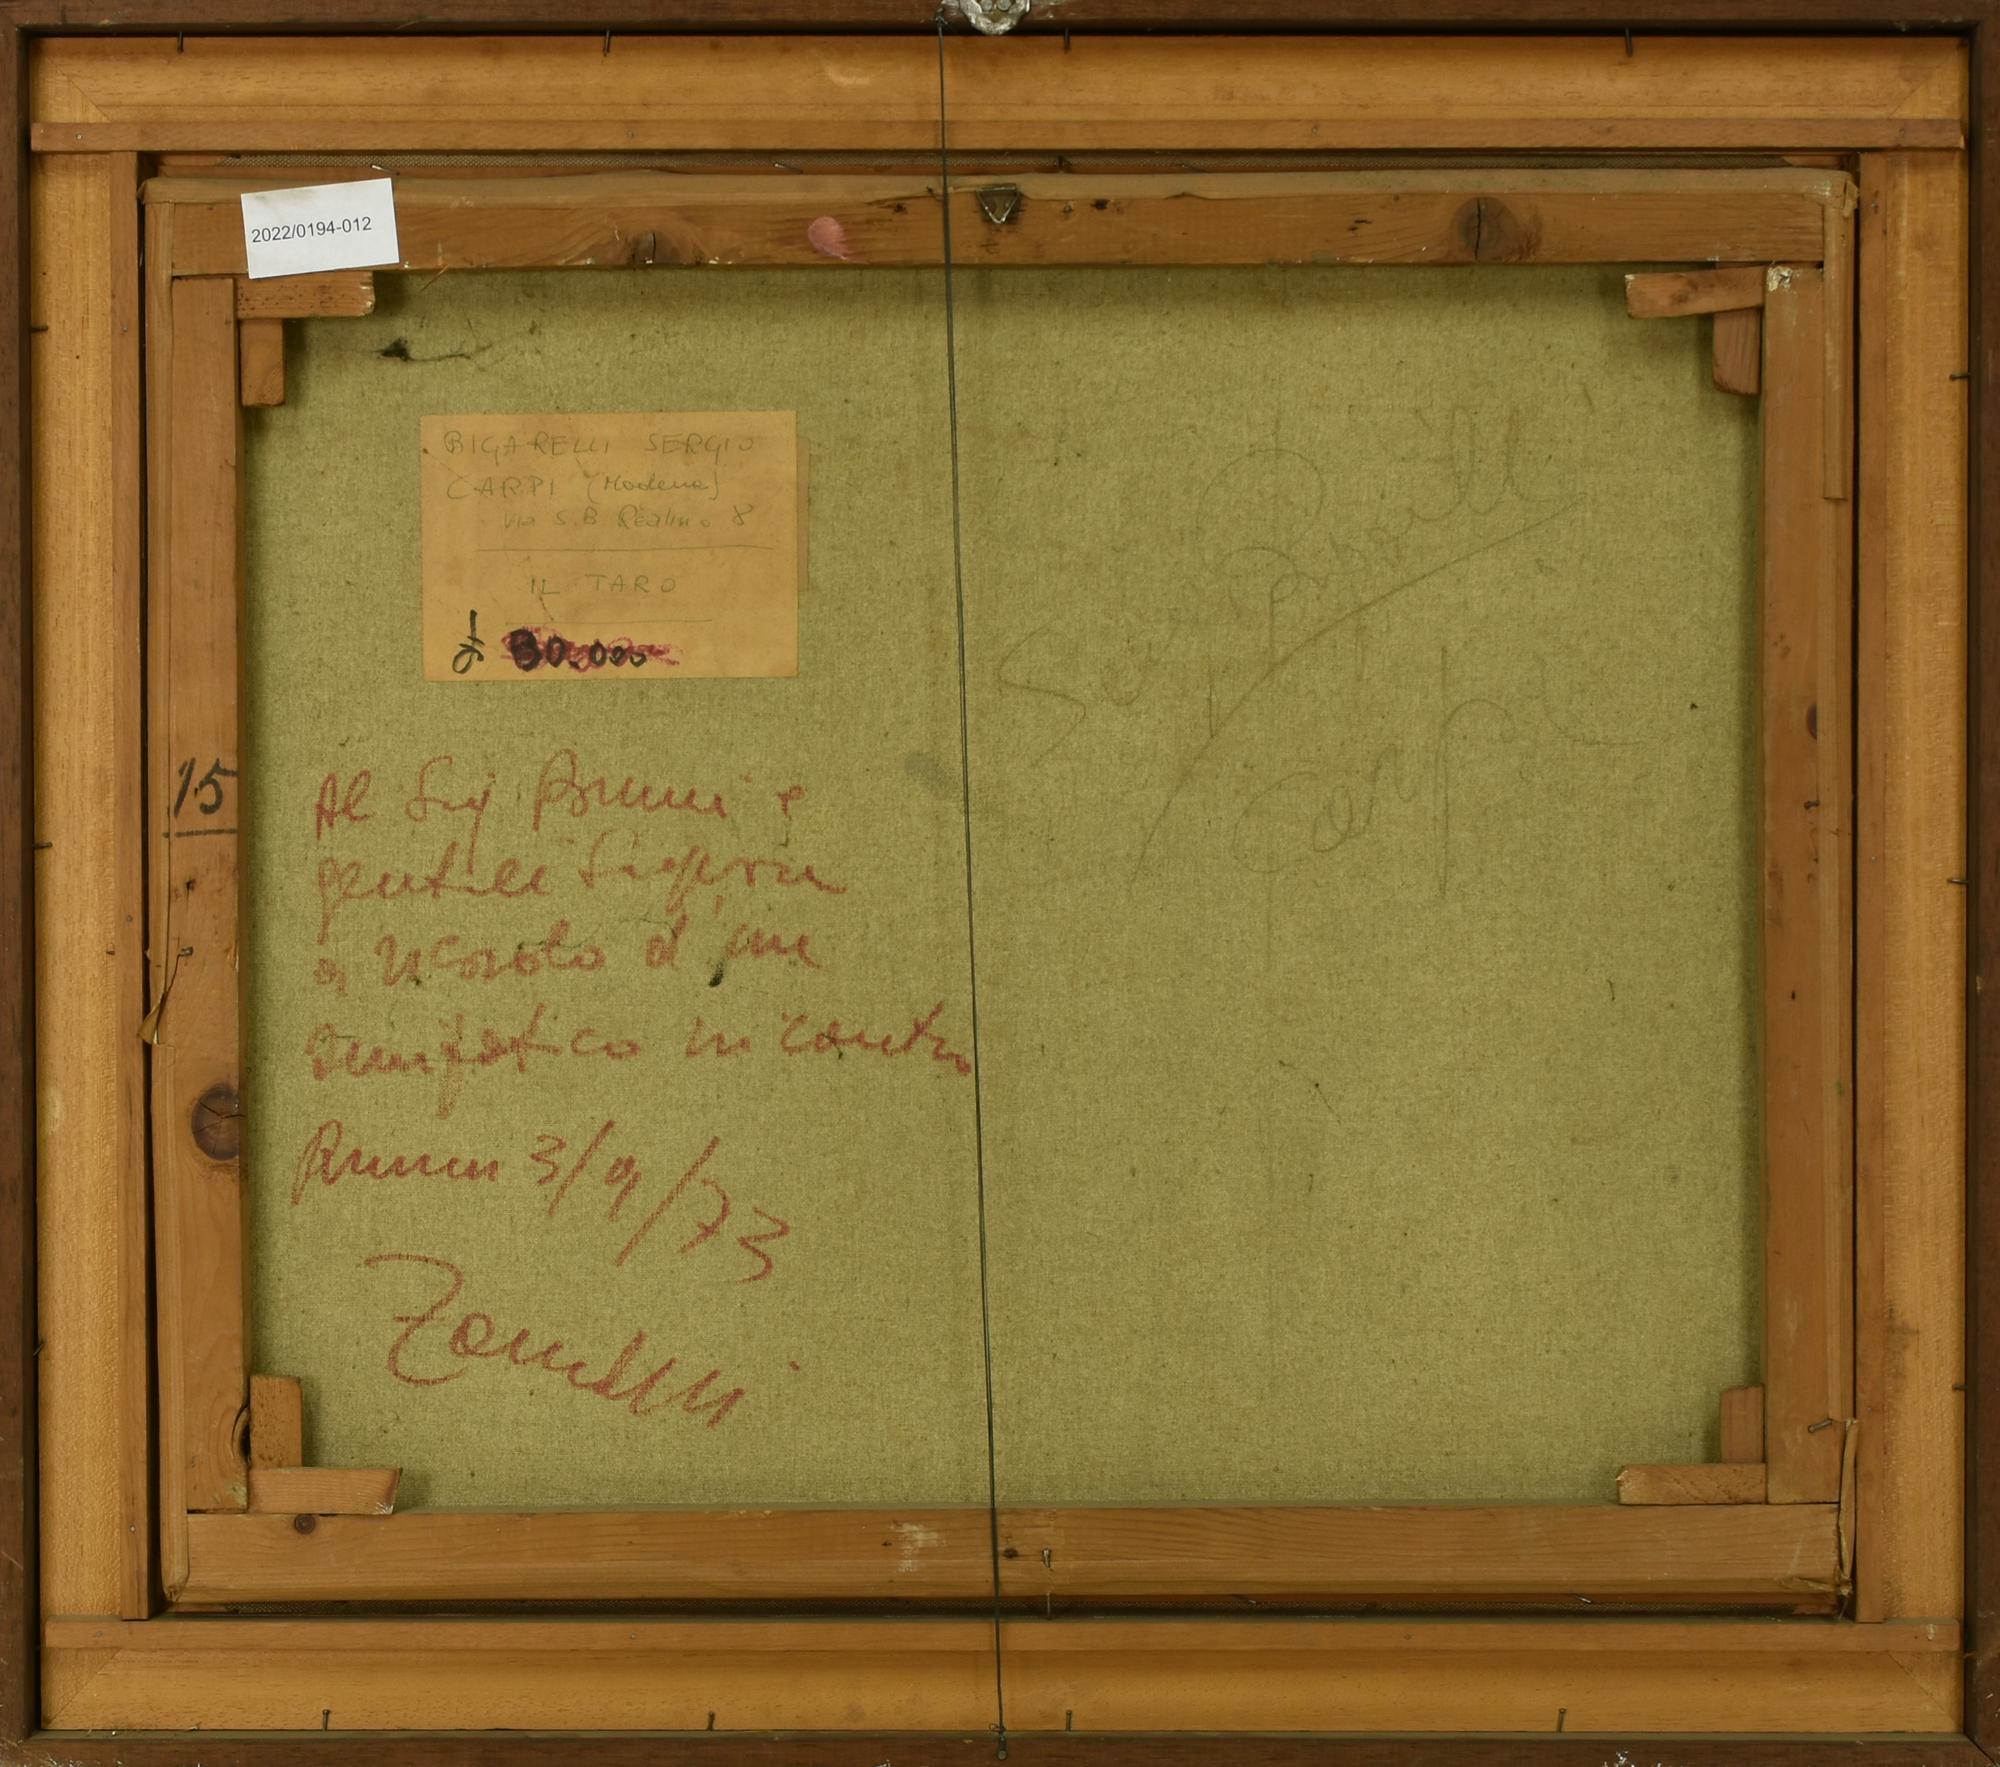 2022/0194-012
BIGARELLI SERGIO
CARPI (Modena)
Via S.B Realino 8
IL TARO
30.000
15
Al Sig Bruni e
gentile Signora
a ricordo d'un
simpatico incontro
Rimini 3/9/73
Zanelli
Sergio
Carpi